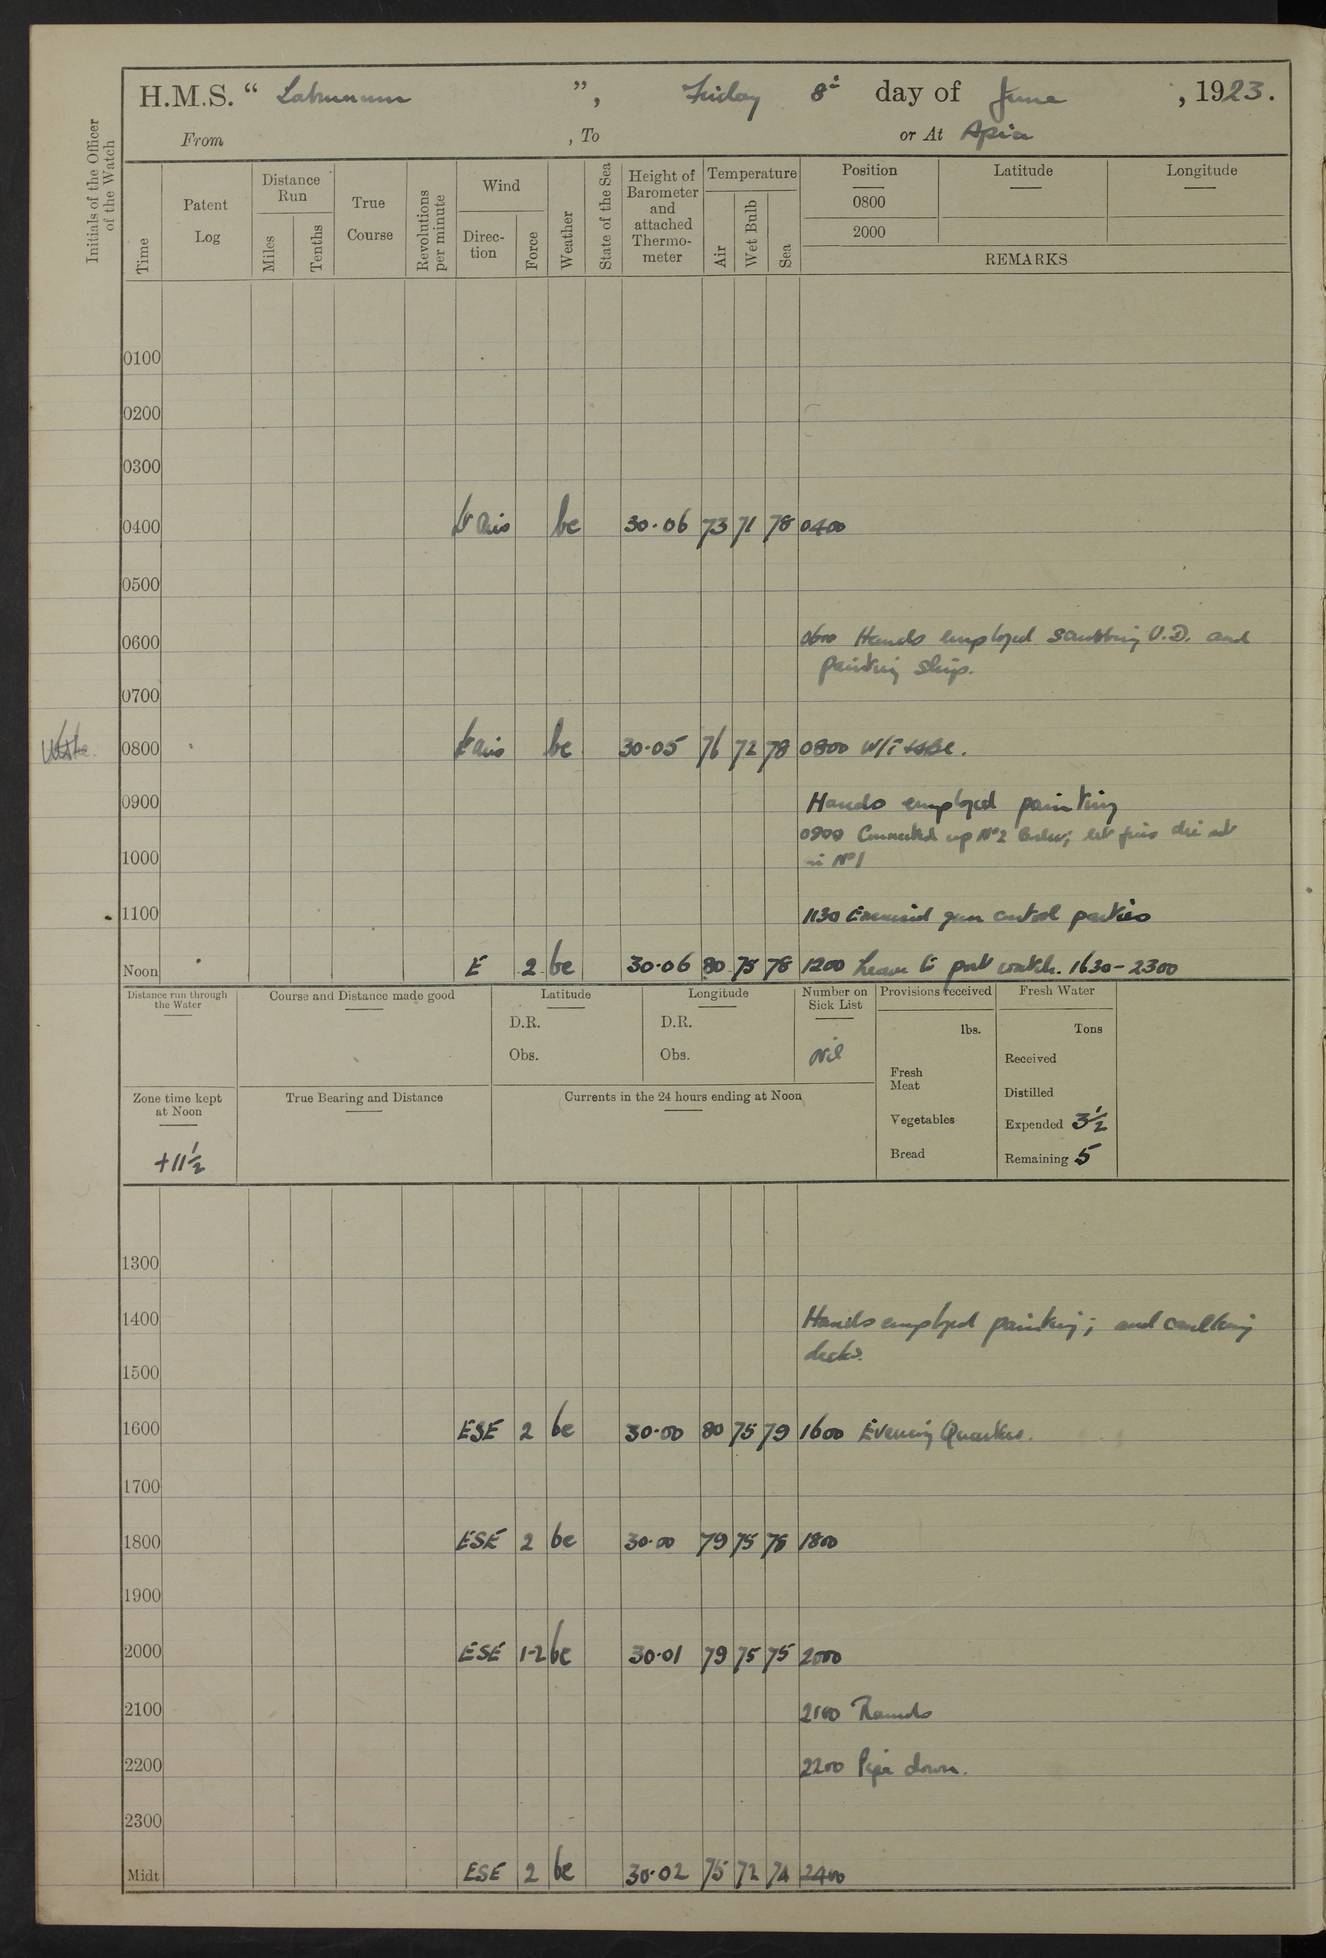 H.M.S. “ Laburnum ”, Friday 8th day of June , 1923.
From , To or At Apia
Initials of the Officer of the Watch
Time
Patent Log
Distance Run
Miles
Tenths
True Course
Revolutions per minute
Wind
Direc- tion
Force
Weather
State of the Sea
Height of Barometer and attached Thermo- meter
Temperature
Air
Wet Bulb
Sea
Position
0800
2000
Latitude
Longitude
REMARKS
0100
0200
0300
0400 Lt airs bc 30.06 73 71 78 0400
0500
0600 0600 Hands employed scrubbing U.D. and
painting ship.
0700
0800 Lt airs bc 30.05 76 72 78 0800 W/T
0900 Hands employed painting
0900 Connected up No 2 Boiler; let fires die out
1000 in No 1
1100 1130 Exercised gun control parties
Noon E 2 bc 30.06 80 75 78 1200 Leave to port watch. 1630-2300
Distance run through the Water
Course and Distance made good
Latitude
D.R.
Obs.
Longitude
D.R.
Obs.
Number on Sick List
Nil
Provisions received
lbs.
Fresh Meat
Vegetables
Bread
Fresh Water
Tons
Received
Distilled
Expended 3½
Remaining 5
Zone time kept at Noon
+11½
True Bearing and Distance
Currents in the 24 hours ending at Noon
1300
1400 Hands employed painting; and caulking
decks.
1500
1600 ESE 2 bc 30.00 80 75 79 1600 Evening Quarters.
1700
1800 ESE 2 bc 30.00 79 75 78 1800
1900
2000 ESE 1-2 bc 30.01 79 75 75 2000
2100 2100 Rounds
2200 2200 Pipe down.
2300
Midt ESE 2 bc 30.02 75 72 74 2400